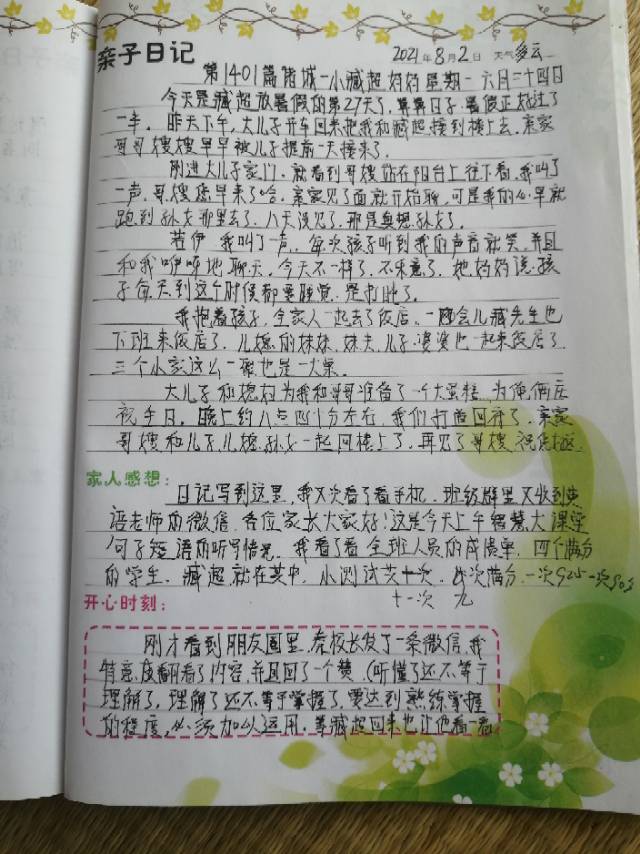 亲子日记 2021年8月2日 天气多云
第1401篇诸城一小臧超妈妈星期一六月二十四日
今天是臧超放暑假的第27天了,算算日子,暑假正好过了
一半。昨天下午,大儿子开车回来把我和臧超接到楼上去,亲家
哥哥嫂嫂早早被儿子提前一天接来了。
刚进大儿子家门,就看到哥嫂站在阳台上往下看,我叫了
一声,哥嫂您早来了哈。亲家见了面就开始聊,可是我的心早就
跑到孙女那里去了,八天没见了,那是真想孙女了。
若伊 我叫了一声,每次孩子听到我的声音就笑,并且
和我咿呀地聊天,今天不一样了,不乐意了,她妈妈说,孩
子每天到这个时候都要睡觉,是打盹了。
我抱着孩子,全家人一起去了饭店。一会儿臧先生也
下班来饭店了,儿媳的妹妹、妹夫、儿子、婆婆也一起来饭店了
三个小家这么一聚也是一大桌。
大儿子和媳妇为我和哥哥准备了一个大蛋糕,为俺俩庆
祝生日,晚上约八点四十分左右,我们打道回府了,亲家
哥嫂和儿子、儿媳、孙女一起回楼上了,再见了哥嫂
家人感想:
日记写到这里,我又次看了看手机,班级群里又收到英
语老师的微信,各位家长大家好!这是今天上午智慧大课堂
句子短语的听写情况。我看了看全班人员的成绩单,四个满分
的学生,臧超就在其中,小测试共十次,次满分,一次92.5一次
十一次 九
开心时刻:
刚才看到朋友圈里,秦校长发了一条微信,我
特意反翻看了内容,并且回了一个赞,(听懂了还不等于
理解了,理解了还不等于掌握了,要达到熟练掌握
的程度,必须加以运用,等臧超回来也让他看一看